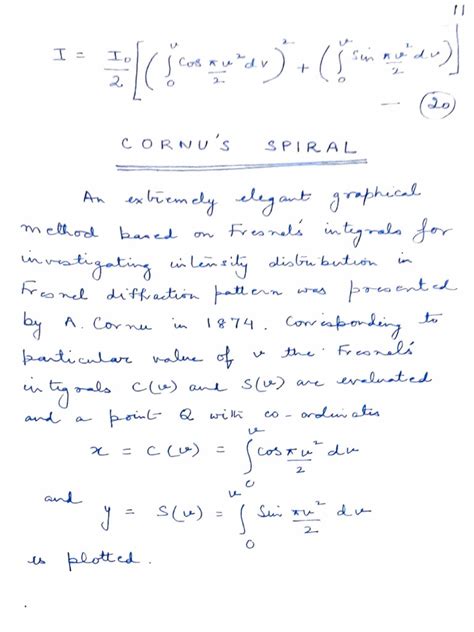 11
I = I₀/2 [ ( ∫₀ᵛ cos πv²/2 dv )² + ( ∫₀ᵛ sin πv²/2 dv )² ]
— (20)
CORNU'S SPIRAL
An extremely elegant graphical
method based on Fresnel's integrals for
investigating intensity distribution in
Fresnel diffraction pattern was presented
by A. Cornu in 1874. Corresponding to
particular value of v the Fresnel's
integrals C(v) and S(v) are evaluated
and a point Q with co-ordinates
x = C(v) = ∫₀ᵛ cos πv²/2 dv
and
y = S(v) = ∫₀ᵛ Sin πv²/2 dv
is plotted.